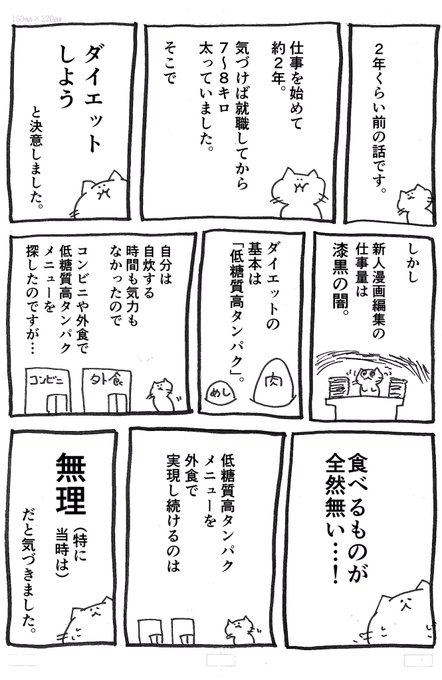 150mm×220mm
2年くらい前の話です。
仕事を始めて
約2年。
気づけば就職してから
7〜8キロ
太っていました。
そこで
ダイエット
しよう
と決意しました。
しかし
新人漫画編集の
仕事量は
漆黒の闇。
ダイエットの
基本は
「低糖質高タンパク」。
肉
めし
自分は
自炊する
時間も気力も
なかったので
コンビニや外食で
低糖質高タンパク
メニューを
探したのですが…
コンビニ
外食
食べるものが
全然無い…!
低糖質高タンパク
メニューを
外食で
実現し続けるのは
無理
(特に
当時は)
だと気づきました。